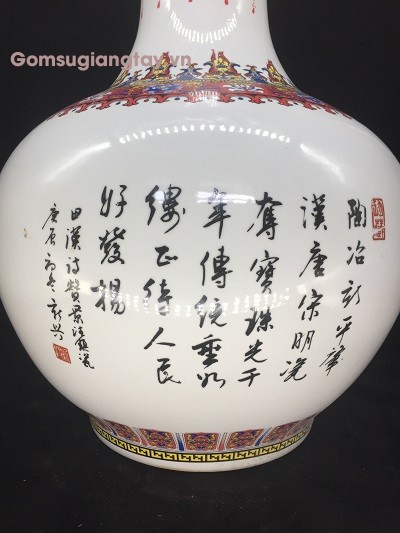 Gomsugiangtay.vn
陶冶新平肇
漢唐宋明瓷
奪寶珠光千
年傳統垂如
縷正待人民
好發揚
田漢詩贊景德鎮瓷
庚辰初冬新兴